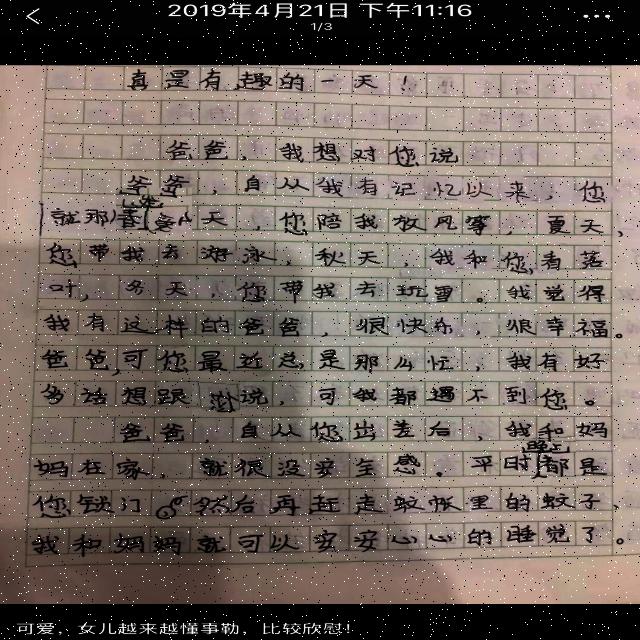 2019年4月21日 下午11:16
1/3
真是有趣的一天！
爸爸，我想对你说
爸爸，自从我有记忆以来，您
就那 天，您陪我放风筝，夏天，
您带我去游泳，秋天，我和您看落
叶，冬天，您带我去玩雪。我觉得
我有这样的爸爸，很快乐，很幸福。
爸爸，可您最近总是那么忙，我有好
多话想跟 说，可我都遇不到您。
爸爸，自从您出差后，我和妈
晚上
妈在家，就很没安全感。平时都是
您锁门 然后再赶走蚊帐里的蚊子，
我和妈妈就可以安安心心的睡觉了。
可爱，女儿越来越懂事勒，比较欣慰！